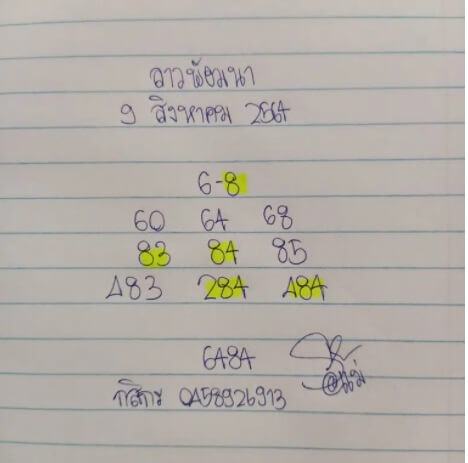 ลาวพัฒนา
9 สิงหาคม 2564
6-8
60 64 68
83 84 85
483 284 484
6484
กสิกร 0458926913